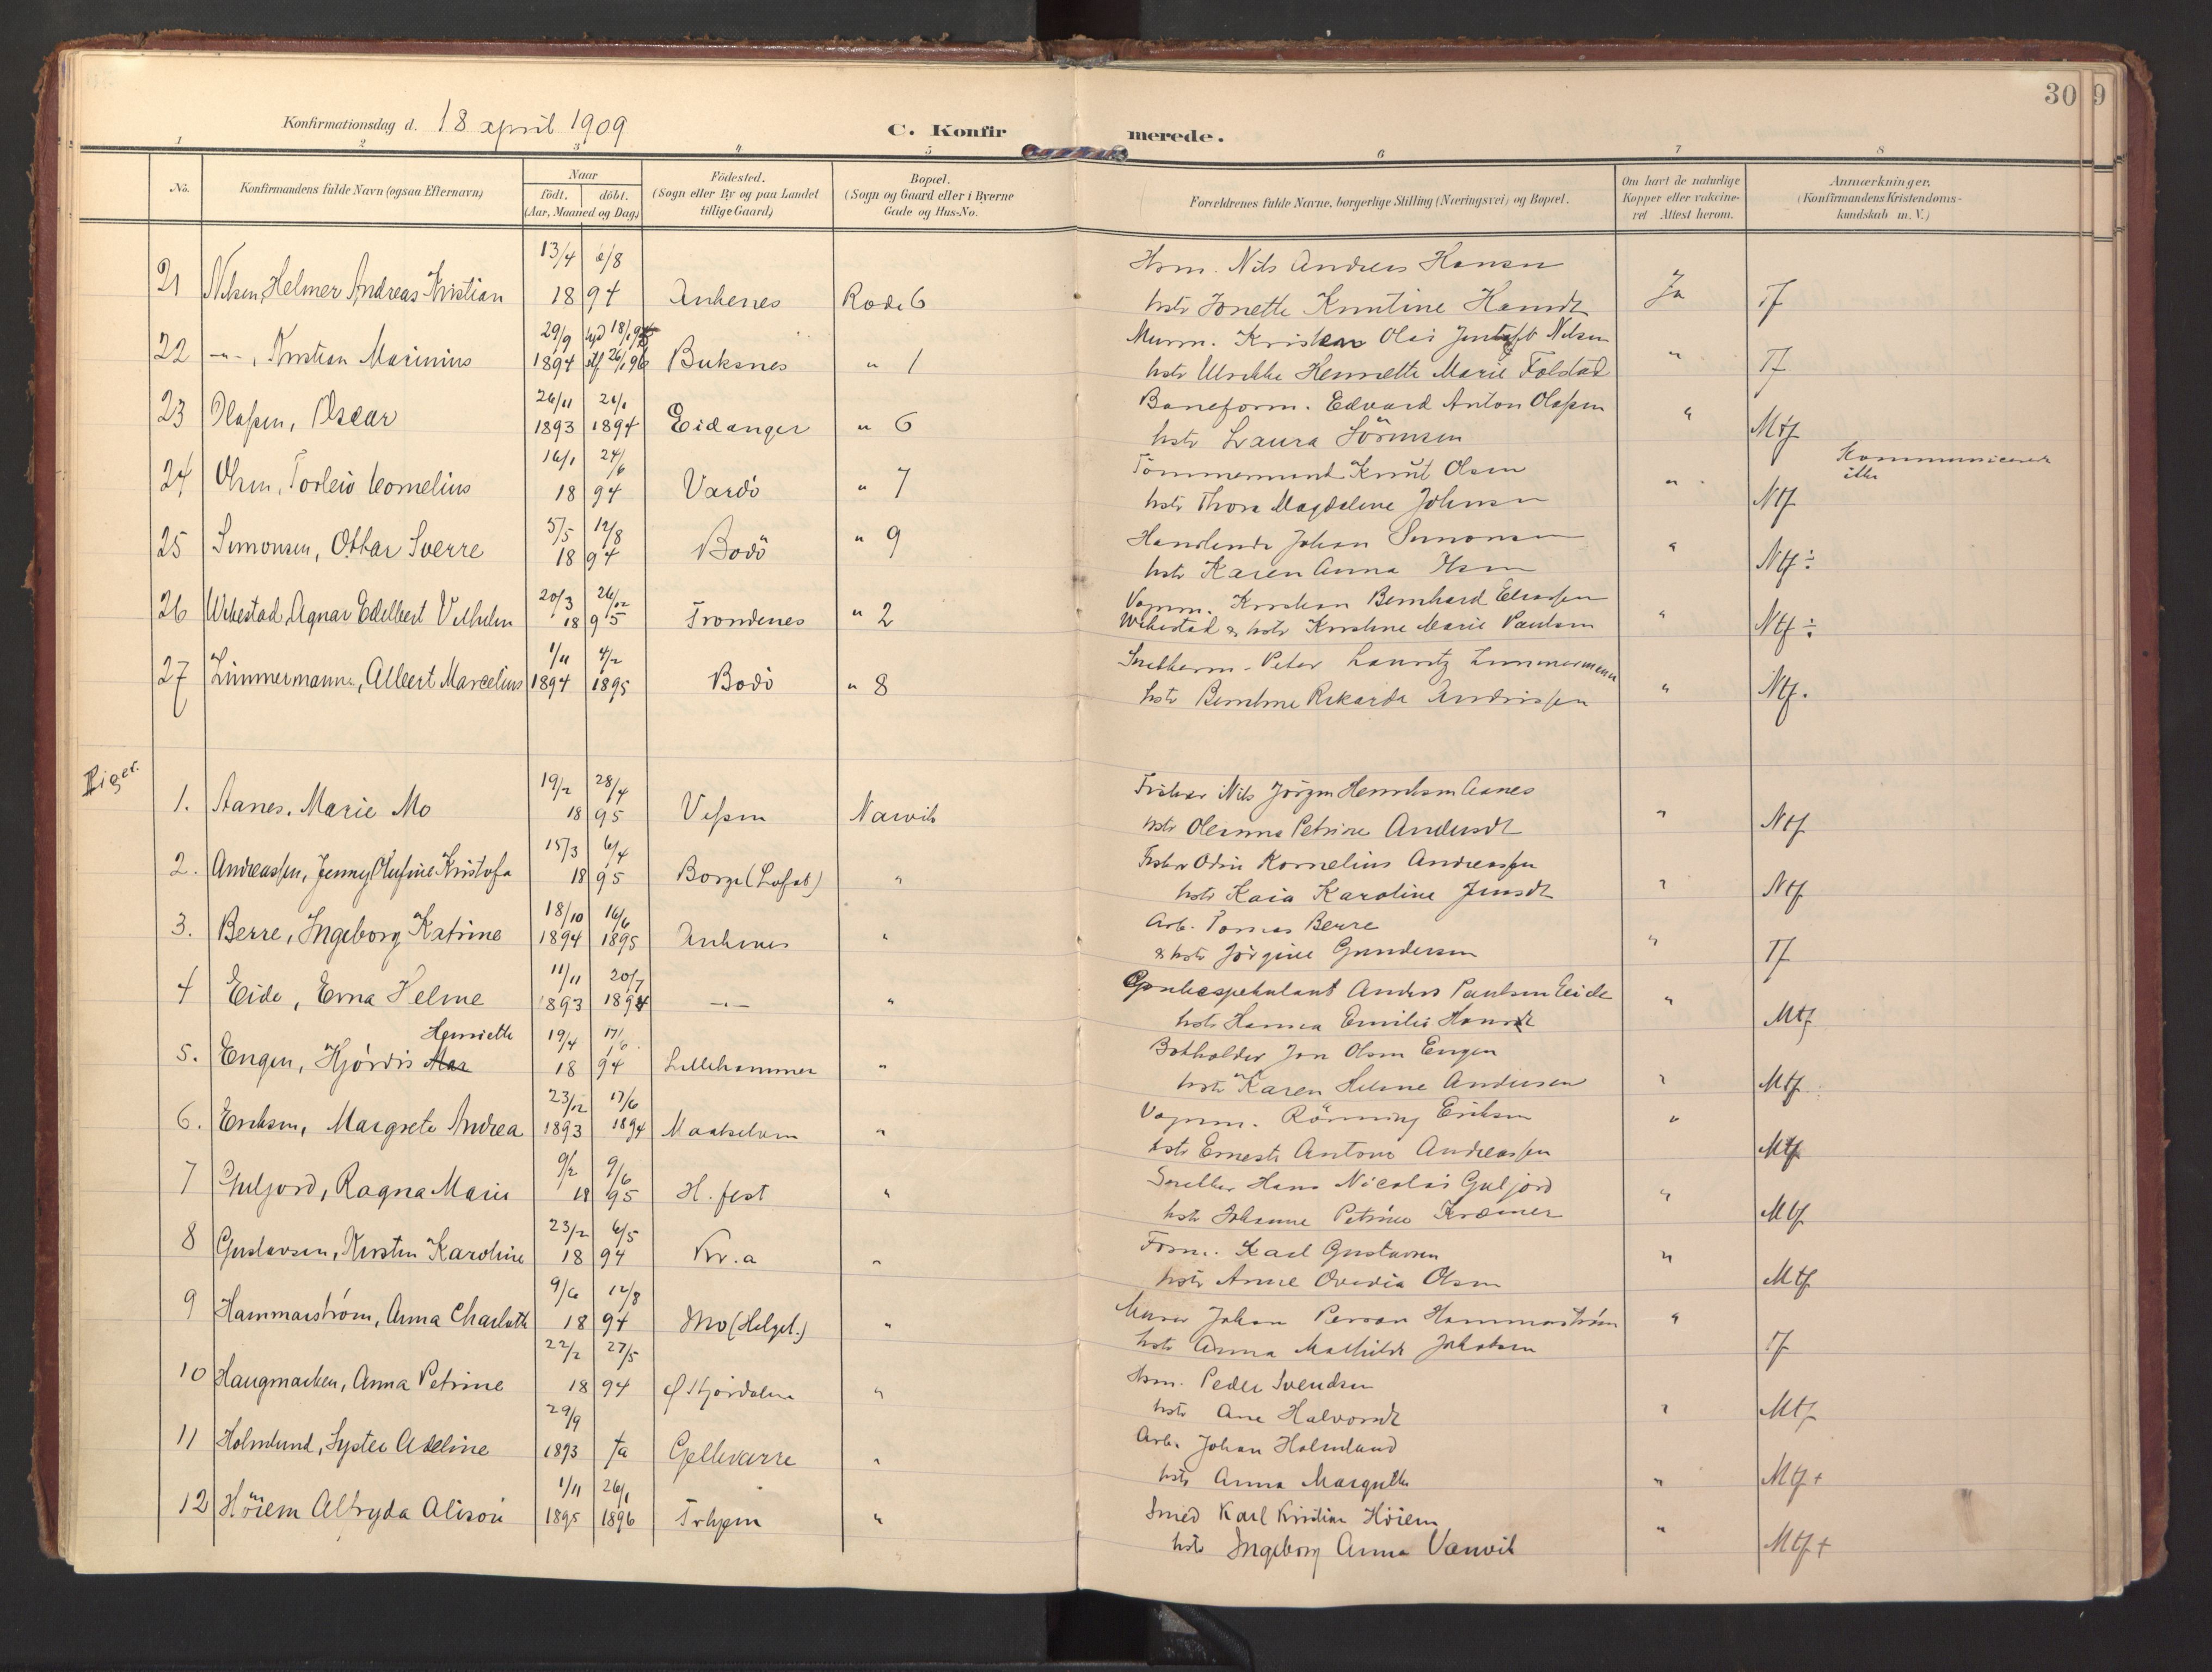 30
9
Konfirmationsdag d. 18 april 1909
C. Konfirmerede.
1 2 3 4 5 6 7 8
No.
Konfirmandens fulde Navn (ogsaa Efternavn)
Naar
födt. döbt.
(Aar, Maaned og Dag)
Födested.
(Sogn eller By og paa Landet
tillige Gaard)
Bopæl.
(Sogn og Gaard eller i Byerne
Gade og Hus-No.
Forældrenes fulde Navne, borgerlige Stilling (Næringsvei) og Bopæl.
Om havt de naturlige
Kopper eller vakcine-
ret Attest herom.
Anmærkninger.
(Konfirmandens Kristendoms-
kundskab m. V.)
13/4 6/8 Hsm. Nils Andreas Hansen
21 Nilsen, Helmer Andreas Kristian 18 94 Ankenes Rode 6 hstr Jonette Knutine Hansdt Ja Tf
29/9 Murm. Olai Nilsen
22 -"-, Kristian Marinius 1894 Buksnes " 1 hstr Ulrikke Henriette Marie Folstad " Tf
26/11 26/1 Baneform. Edvard Anton Olaſsen
23 Olaſsen, Oscar 1893 1894 Eidanger " 6 hstr Laura Sörensen " Mtf
16/1 24/6 Tömmermand Knut Olsen Kommunicerede
24 Olsen, Torleiv Cornelius 18 94 Vardö " 7 hstr Thora Magdalene Johnsen " Ntf ikke
5/5 12/8 Handlende Johan Simonsen
25 Simonsen, Ottar Sverre 18 94 Bodö " 9 hstr Karen Anna " Ntf ÷
20/3 26/12 Vognm. Kristian Bernhard Eliasſen
26 Wibestad, Agnar Edelbert Vilhelm 18 95 Trondenes " 2 Wibestad & hstr Kristine Marie Paulsen " Ntf ÷
1/11 4/2 Peter Lauritz Zimmermann
27 Zimmermann, Albert Marcelius 1894 1895 Bodö " 8 hstr Rikarda Andrisſen " Ntf.
Piger.
19/2 28/4 Fisker Nils Jörgen Henriksen Aanes
1. Aanes, Marie Mo 18 95 Veſsen Narvik hstr Petrine Andersdt " Ntf
15/3 6/4 Fisker Odin Kornelius Andreasſen
2. Andreasſen, Jenny Olufine Kristofa 18 95 Borge (Lofot) " hstr Kaia Karoline Jensdt " Ntf
18/10 16/6 Arb. Tomas Berre
3. Berre, Ingeborg Katrine 1894 1895 Ankenes " & hstr Jörgine Gundersen " Tf
11/11 20/7 Anders Paulsen Eide
4 Eide, Erna Helene 1893 1894 -"- " hstr Hanna Emilie Hansdt " Mtf
Henriette 19/4 17/6 Jon Olsen Engen
5. Engen, Hjördis Mar 18 94 Lillehammer " hstr Karen Helene Andersen " Mtf
23/12 17/6 Vognm. Rönning Eriksen
6. Eriksen, Margrete Andrea 1893 1894 Maalselven " hstr Antona Andreasſen " Mtf
9/2 9/6 Snekker Hans Nicolai Guljord
7 Guljord, Ragna Marie 18 95 H. fest " hstr Johanne Petrine Kræmer " Mtf
23/2 6/5 Form. Karl Gustavsen
8 Gustavsen, Kirsten Karoline 18 94 Kr.a " hstr Anne Ovedia Olsen " Mtf
9/6 12/8 Murer Johan Persson Hammarström
9 Hammarström, Anna Charlotte 18 94 Mo (Helgel.) " hstr Anna Mathilde Jakobsen " Tf
22/2 27/5 Hsm. Peder Svendsen
10 Haugmarken, Anna Petrine 18 94 Ø Stjördalen " hstr Ane Halvorsdt " Mtf
29/9 Arb. Johan Holmlund
11 Holmlund, Adeline 1893 Gellivarre " hstr Anna Margrethe " Mtf +
1/11 26/1 Smed Karl Kristian Höiem
12 Höiem Alfryda 1895 1896 Trhjem " hstr Ingeborg Anna Vanvik " Mtf +